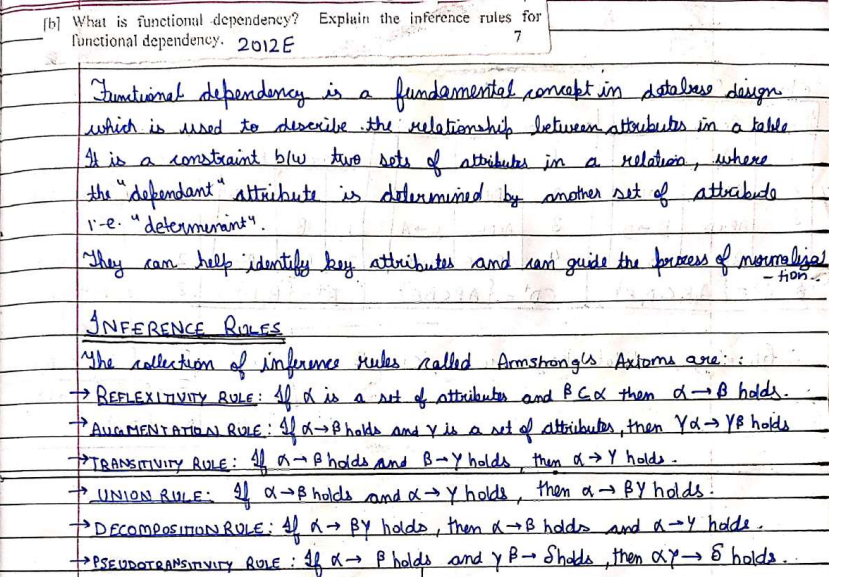 [b] What is functional dependency? Explain the inference rules for
functional dependency. 2012E 7
Functional dependency is a fundamental concept in database design
which is used to describe the relationship between attributes in a table
It is a constraint b/w two sets of attributes in a relation, where
the "dependant" attribute is determined by another set of attribute
i-e. "determinant".
They can help identify key attributes and can guide the process of normalizat
- tion.
INFERENCE RULES
The collection of inference rules called Armstrong's Axioms are:
→ REFLEXITIVITY RULE: If α is a set of attributes and β ⊂ α then α→β holds.
→ AUGMENTATION RULE: If α→β holds and γ is a set of attributes, then γα→γβ holds
→ TRANSITIVITY RULE: If α→β holds and β→γ holds, then α→γ holds.
→ UNION RULE: If α→β holds and α→γ holds, then α→βγ holds.
→ DECOMPOSITION RULE: If α→βγ holds, then α→β holds and α→γ holds.
→ PSEUDOTRANSITIVITY RULE: If α→β holds and γβ→δ holds, then αγ→δ holds.